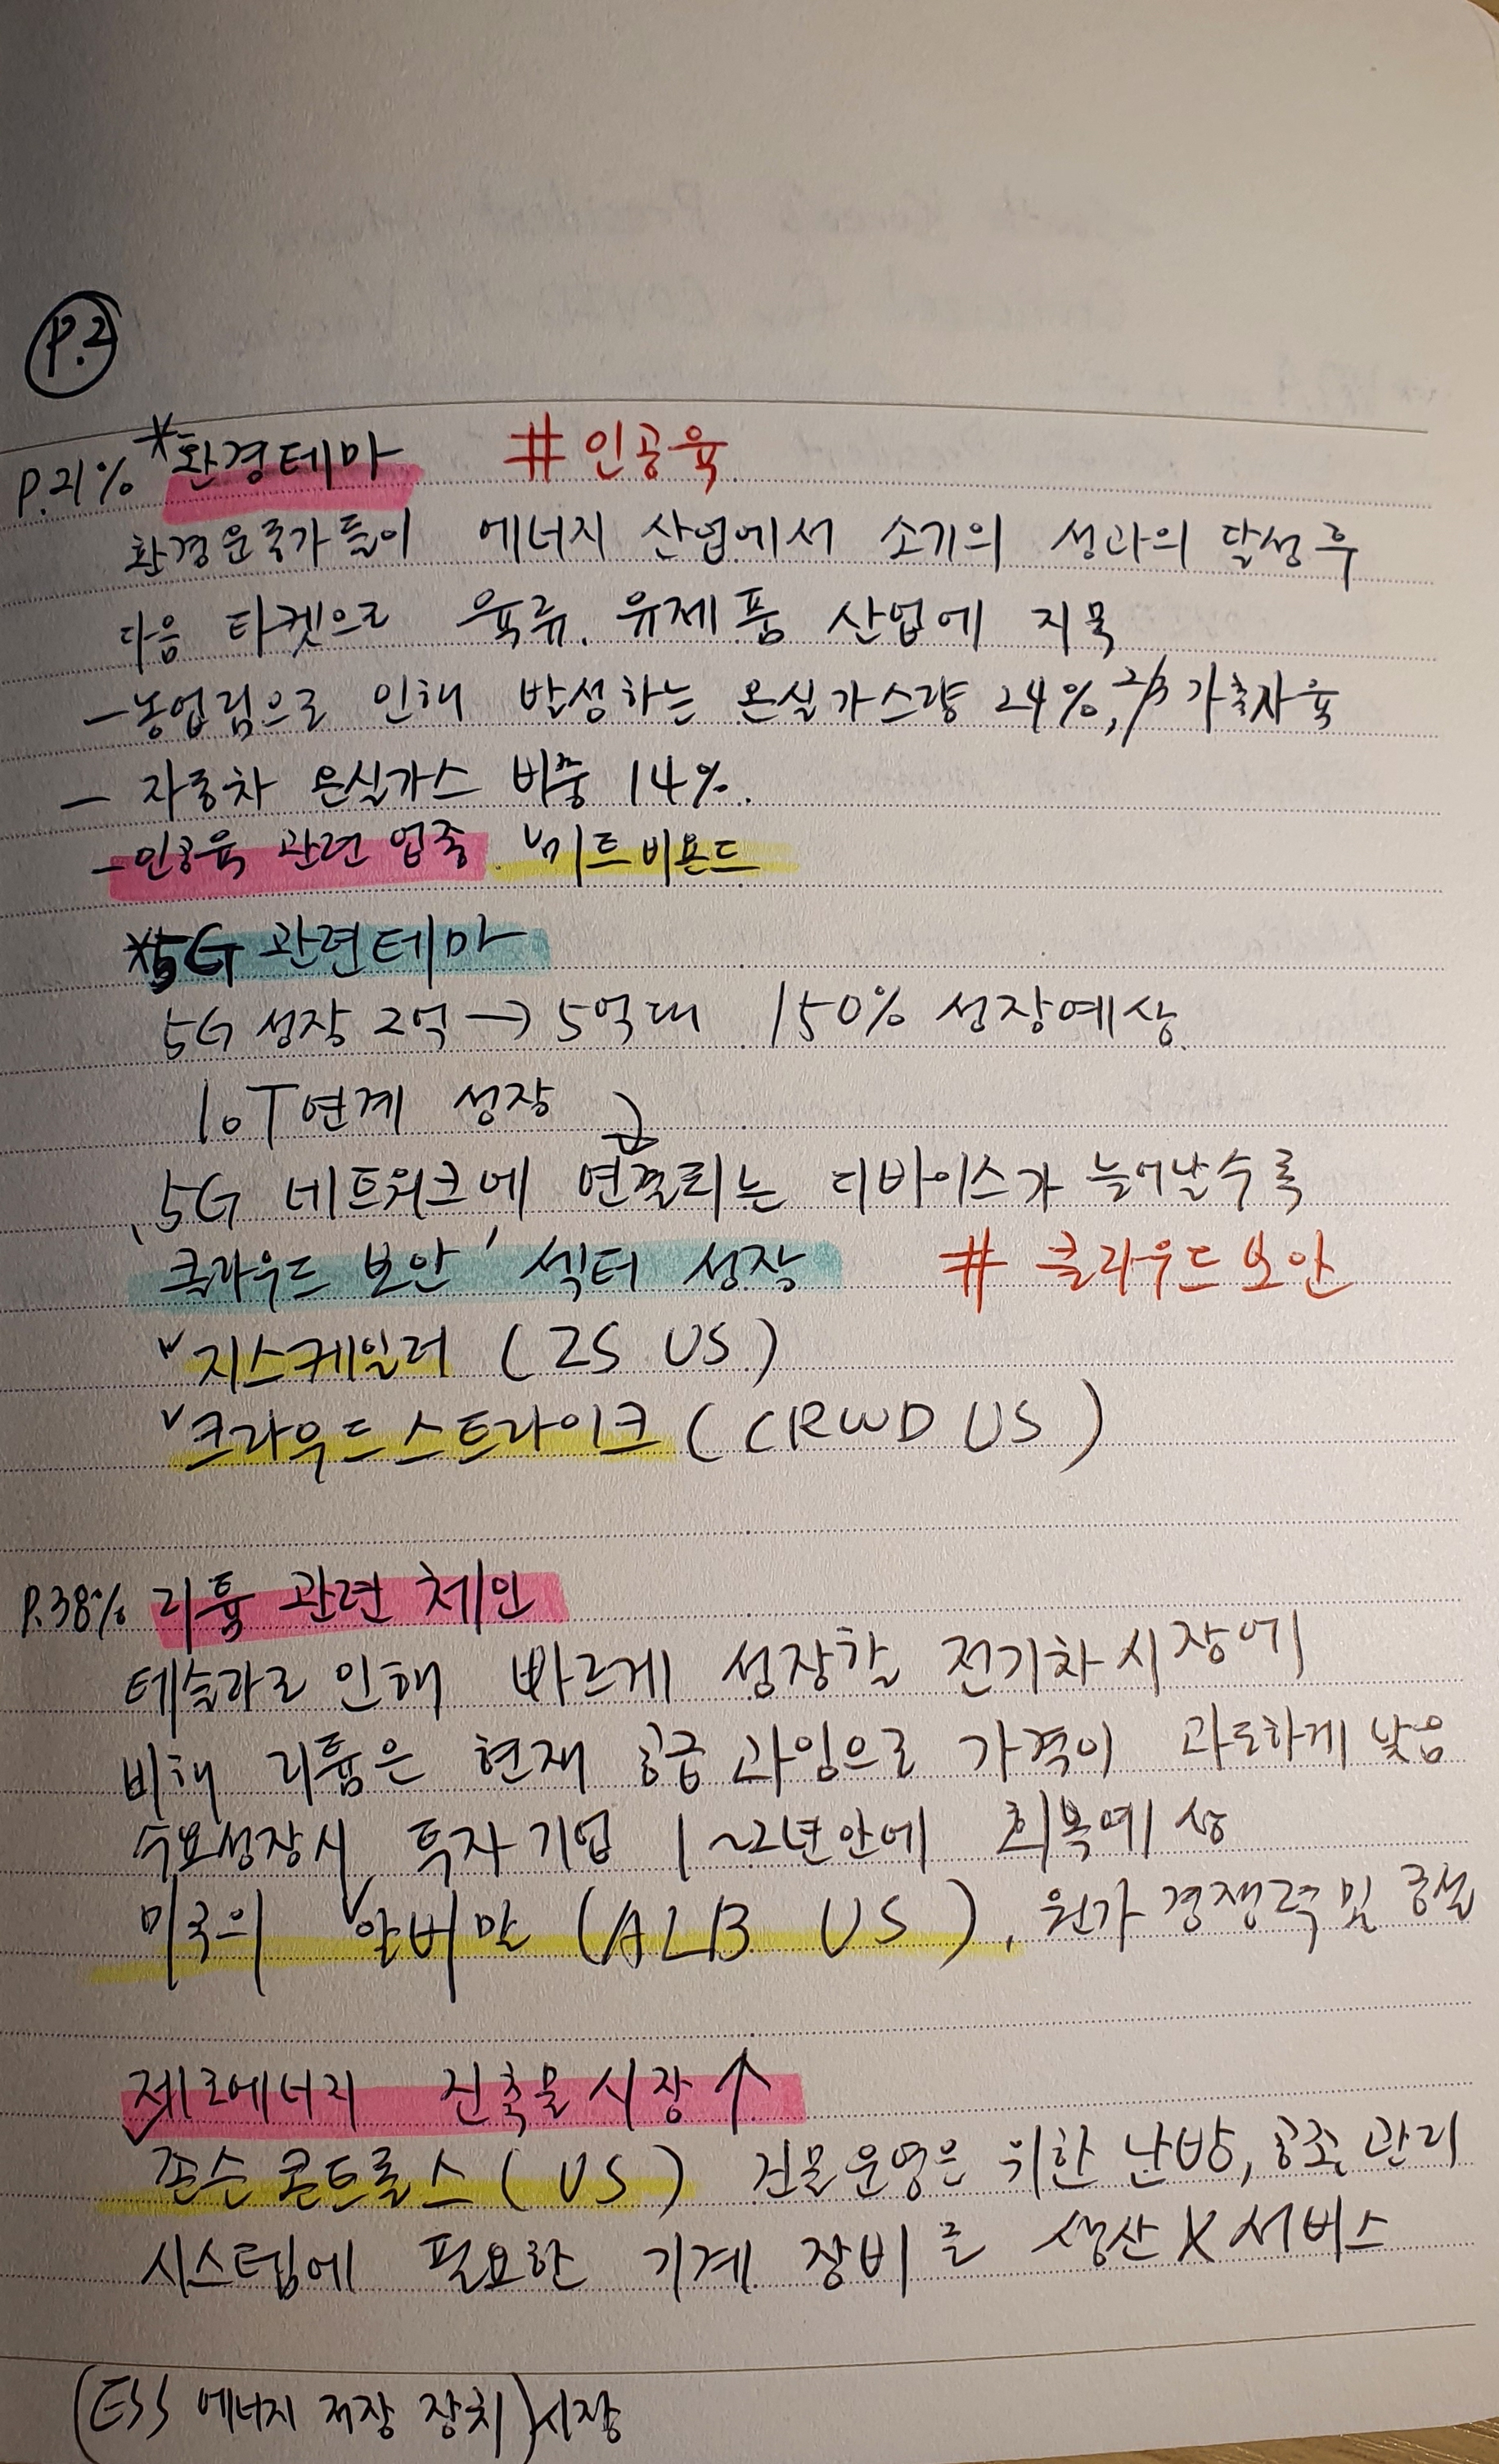 P.2
P.21% *환경테마 #인공육
환경운동가들이 에너지 산업에서 소기의 성과의 달성 후
다음 타켓으로 육류. 유제품 산업에 지목
-농업림으로 인해 발생하는 온실가스량 24%, 2/3 가축사육
- 자동차 온실가스 비중 14%.
-인공육 관련 업종. 미트비욘드
*5G 관련테마
5G 성장 2억 → 5억대 150% 성장예상
IoT연계 성장
5G 네트워크에 연결되는 디바이스가 늘어날수록
클라우드 보안' 섹터 성장 # 클라우드보안
지스케일러 (ZS US)
크라우드스트라이크 (CRWD US)
P.38% 리튬 관련 체인
테슬라로 인해 빠르게 성장할 전기차 시장에
비해 리튬은 현재 공급과잉으로 가격이 과도하게 낮음
수요성장시 투자기업 1~2년안에 회복예상
미국의 알버말 (ALB US), 원가 경쟁력 및 증설
제로에너지 건축물시장 ↑
존슨콘트롤스 (US) 건물운영은 위한 난방, 공조관리
시스템에 필요한 기계 장비를 생산 X 서비스
(ESS 에너지 저장 장치) 시장